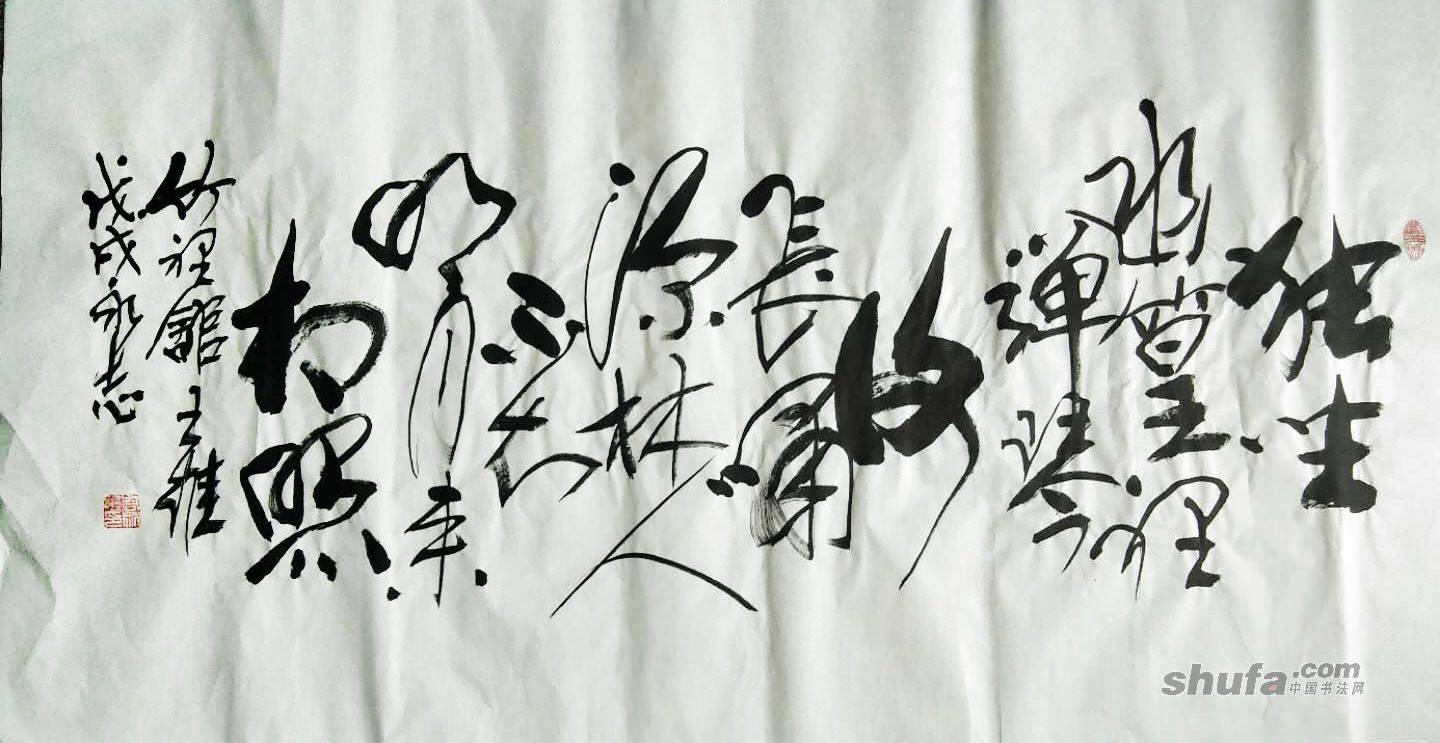 独坐
幽篁裡
弹琴
复
長嘯
深林人
不知
明月来
相照
竹裡館 王維
戊戌永志
shufa.com
中国书法网